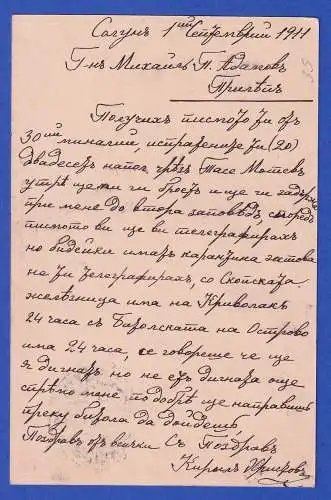 Солунъ 1ий Септемврий 1911
Г-нъ Михаилъ П. Адамовъ
Прилѣпъ
Получих писмото ги отъ
30ий миналий, испратените ги (20)
двадесеть напол. чрѣзъ Тасе Мотевъ
утрѣ ще ми ги брои и ще ги задържа
при мене до втора заповѣдъ, споредъ
писмото ви ще ви телеграфирахъ
но бидейки имахъ карантина затова
не ги телеграфирах, со Скопската
железница има на Криволакъ
24 часа съ Битолската на Острово
има 24 часа, се говореше че ще
я дигнатъ но не е дигната още
споредъ мене по добрѣ ще направишъ
преку Битола да дойдешъ
Поздрав отъ всички Съ Поздрав
Кирилъ